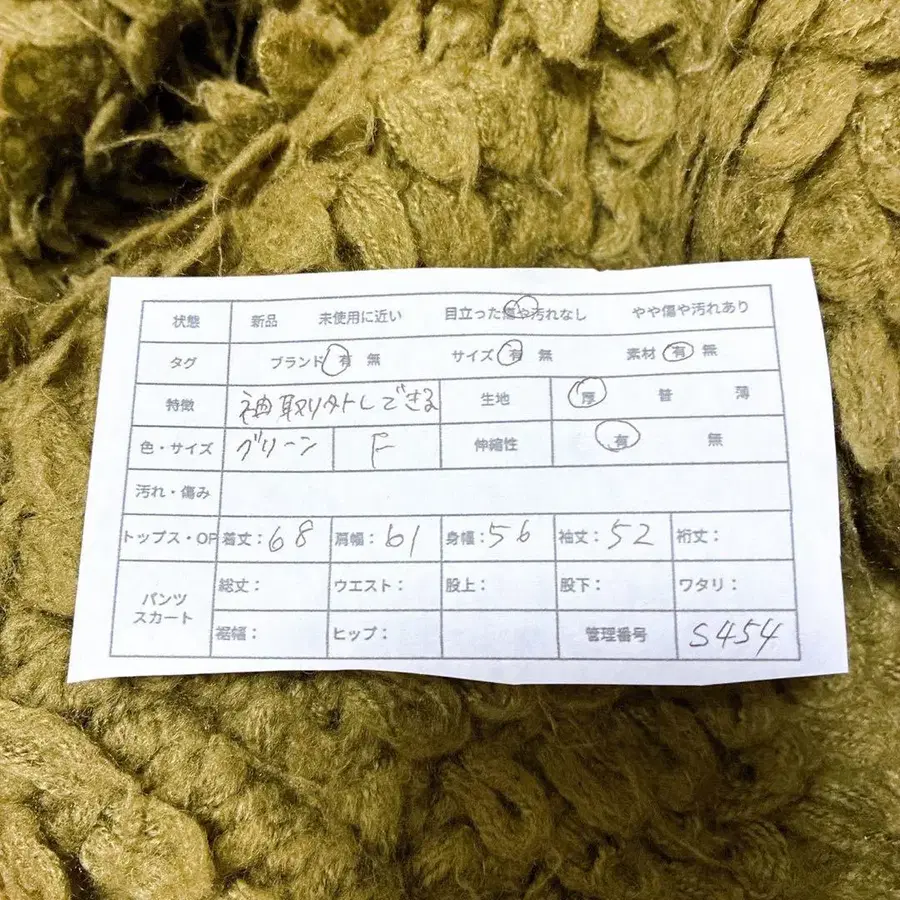 状態 新品 未使用に近い 目立った傷や汚れなし やや傷や汚れあり
タグ ブランド 有 無 サイズ 有 無 素材 有 無
特徴 袖取り外しできる 生地 厚 普 薄
色・サイズ グリーン F 伸縮性 有 無
汚れ・傷み
トップス・OP 着丈：68 肩幅：61 身幅：56 袖丈：52 裄丈：
パンツ スカート 総丈： ウエスト： 股上： 股下： ワタリ：
裾幅： ヒップ： 管理番号 S454